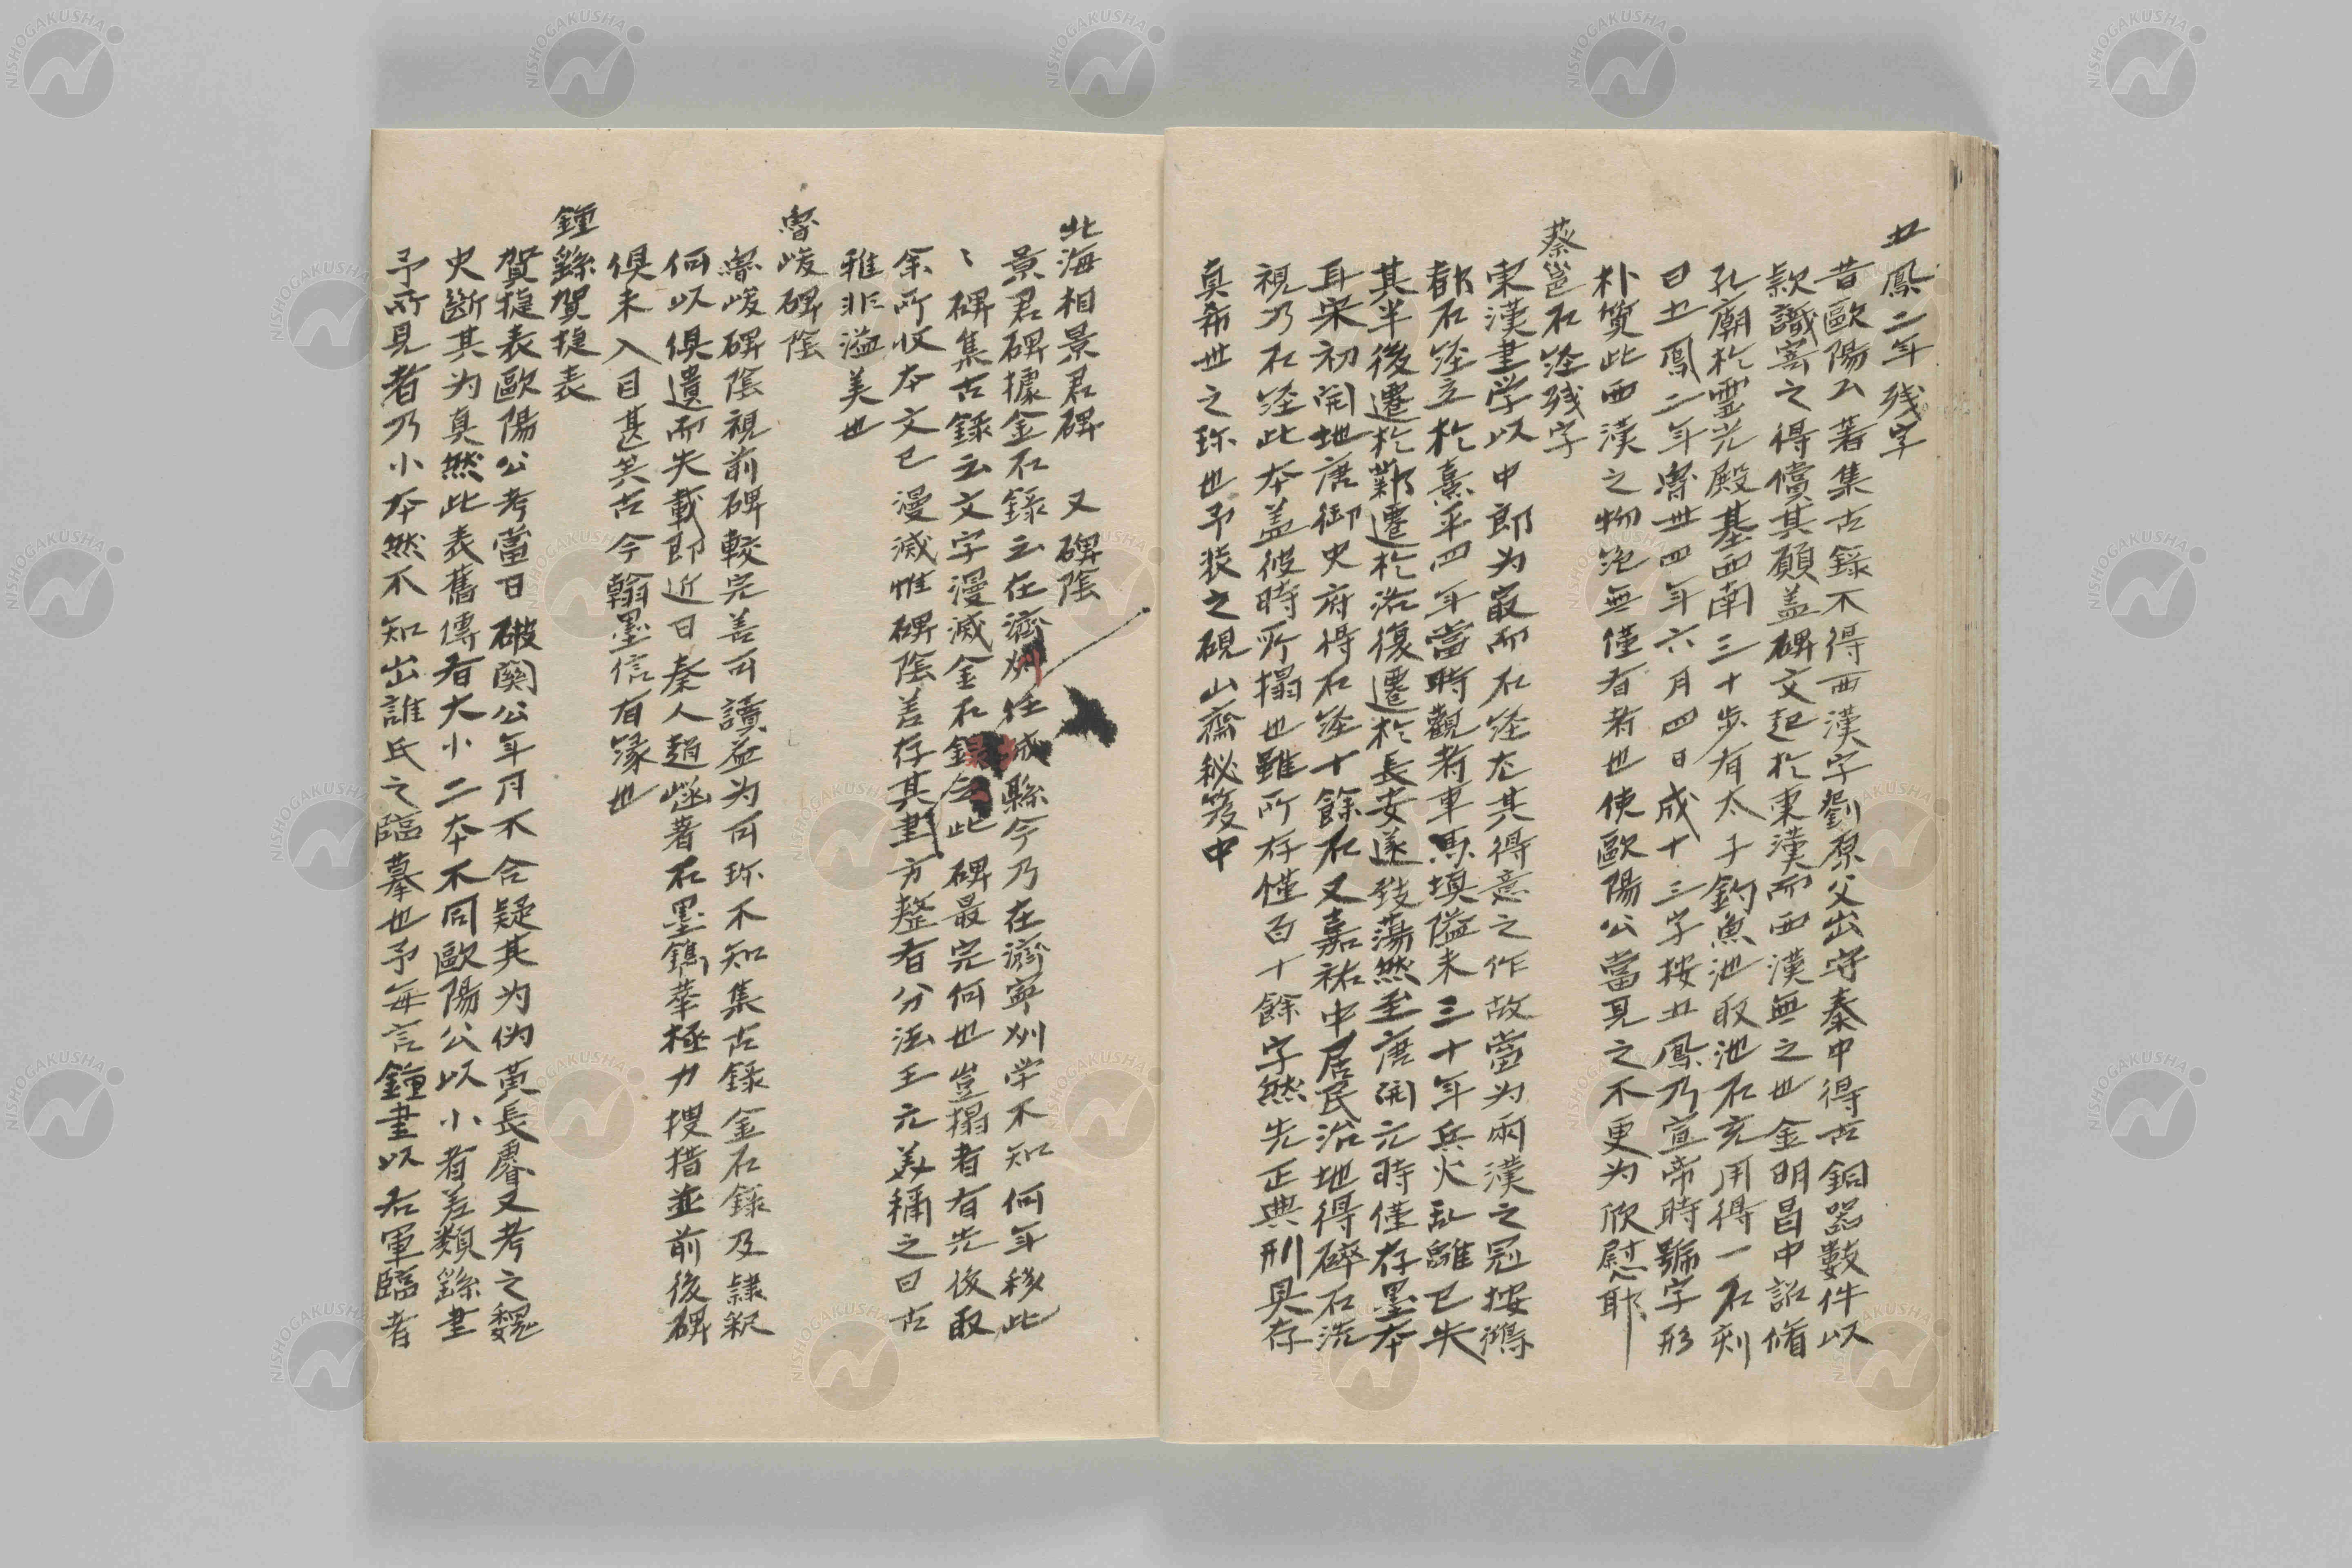 五鳳二年残字
昔歐陽公著集古錄不得西漢字劉原父出守秦中得古銅器數件以
款識寄之得償其願蓋碑文起於東漢而西漢無之也金明昌中詔脩
孔廟於靈光殿基西南三十步有太子釣魚池取池石充用得一石刻
曰五鳳二年魯卅四年六月四日成十三字按五鳳乃宣帝時號字形
朴質此西漢之物絶無僅有者也使歐陽公當見之不更为欣慰耶
蔡邕石経残字
東漢書学以中郎为最而石経尤其得意之作故當为兩漢之冠按鴻
都石経立於熹平四年當時觀者車馬填隘未三十年兵火乱離已失
其半後遷於鄴遷於洛復遷於長安遂致蕩然至唐開元時僅存墨本
耳宋初開地唐御史府得石経十餘石又嘉祐中居民治地得碎石洗
視乃石経此本蓋彼時所搨也雖所存僅百十餘字然先正典刑具存
真希世之珎也予装之硯山齋秘笈中
北海相景君碑　又碑陰
景君碑據金石錄云在濟州任城縣今乃在濟寧州学不知何年移此
丶碑集古錄云文字漫滅金石錄云此碑最完何也豈搨者有先後取
余所收本文已漫滅惟碑陰善存其書方整有分法王元美稱之曰古
雅非溢美也
魯峻碑陰
魯峻碑陰視前碑較完善可讀益为可珎不知集古錄金石錄及隷釈
何以俱遺而失載即近日秦人趙崡著石墨鐫華極力搜揩並前後碑
俱未入目甚矣古今翰墨信有縁也
鍾繇賀捷表
賀捷表歐陽公考當日破関公年月不合疑其为伪黄長睿又考之魏
史斷其为真然此表舊傳有大小二本不同歐陽公以小者差類繇書
予所見者乃小本然不知出誰氏之臨摹也予每言鍾書以右軍臨者
NISHOGAKUSHA